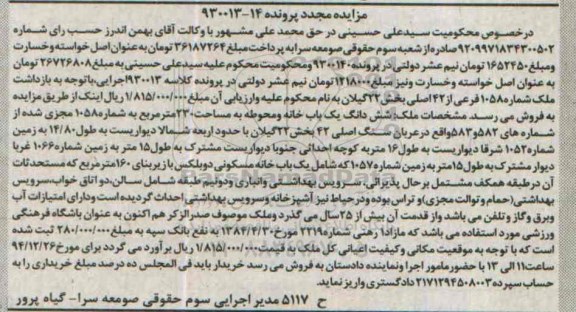 مزایده مجدد پرونده ۱۴-۹۳۰۰۱۳
درخصوص محکومیت سیدعلی حسینی در حق محمد علی مشهور با وکالت آقای بهمن اندرز حسب رای شماره
۹۲۰۹۹۷۱۸۳۴۳۰۰۵۰۲ صادره از شعبه سوم حقوقی صومعه سرا به پرداخت مبلغ ۳۶۱۸۷۲۶۴ تومان به عنوان اصل خواسته و خسارت
و مبلغ ۱۶۵۲۴۵۰ تومان نیم عشر دولتی در پرونده ۹۳۰۰۱۴ و محکومیت محکوم علیه سیدعلی حسینی به مبلغ ۲۶۷۲۶۸۰۸ تومان
به عنوان اصل خواسته و خسارت و نیز مبلغ ۱۲۱۸۰۰۰ تومان نیم عشر دولتی در پرونده کلاسه ۹۳۰۰۱۳ اجرایی، با توجه به بازداشت
ملک شماره ۱۰۵۸ فرعی از ۴۲ اصلی بخش ۲۲ گیلان به نام محکوم علیه و ارزیابی آن مبلغ ۱/۸۱۵/۰۰۰/۰۰۰ ریال اینک از طریق مزایده
به فروش می رسد. مشخصات ملک: شش دانگ یک باب خانه و محوطه به مساحت ۲۳۰ مترمربع به شماره ۱۰۵۸ مجزی شده از
شماره های ۵۸۲ و ۵۸۳ واقع در عربان سنگ اصلی ۴۲ بخش ۲۲ گیلان با حدود اربعه شمالا دیواریست به طول ۱۴/۸۰ به زمین
شماره ۱۰۵۲ شرقا دیواریست به طول ۱۶ متر به کوچه احداثی جنوبا دیواریست مشترک به طول ۱۵ متر به زمین شماره ۱۰۶۶ غربا
دیوار مشترک به طول ۱۵ متر به زمین شماره ۱۰۵۷ که شامل یک باب خانه مسکونی دوبلکس با زیربنای ۱۶۰ مترمربع که مستحدثات
آن در طبقه همکف مشتمل بر حال پذیرائی، سرویس بهداشتی و انباری و دونیم طبقه شامل سالن، دو اتاق خواب سرویس
بهداشتی (حمام و توالت مجزی) و تراس بوده و در حیاط نیز آشپزخانه و سرویس بهداشتی احداث گردیده است و دارای امتیازات آب
وبرق و گاز و تلفن می باشد و از قدمت آن بیش از ۲۵ سال می گذرد و ملک موصوف صدرالذکر هم اکنون به عنوان باشگاه فرهنگی
ورزشی مورد استفاده می باشد که مازادا رهنی شماره ۲۲۱۹ مورخ ۱۳۸۴/۴/۳۰ به نفع بانک سپه به مبلغ ۲۸۰/۰۰۰/۰۰۰ ثبت شده
است که با توجه به موقعیت مکانی و کیفیت اعیانی کل ملک به قیمت ۱/۸۱۵/۰۰۰/۰۰۰ ریال برآورد می گردد برای مورخ ۹۴/۱۲/۲۶
ساعت ۱۱ الی ۱۳ با حضور مامور اجرا و نماینده دادستان به فروش می رسد خریدار باید فی المجلس ده درصد مبلغ خریداری را به
حساب سپرده ۲۱۷۱۲۹۴۵۰۸۰۰۳ دادگستری واریز نماید.
ح ۵۱۱۷ مدیر اجرایی سوم حقوقی صومعه سرا- گیاه پرور